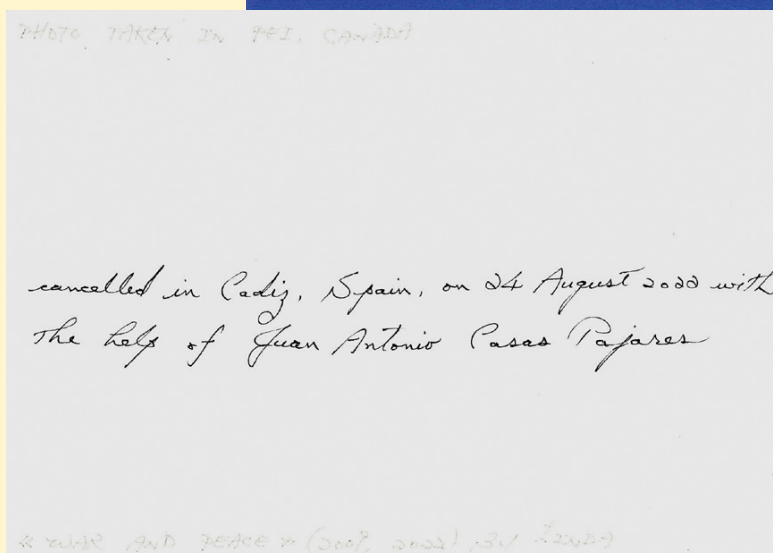 PHOTO TAKEN IN PEI, CANADA
cancelled in Cadiz, Spain, on 24 August 2022 with
the help of Juan Antonio Casas Pajares
« WAR AND PEACE » (2009, 2022) BY LINDA